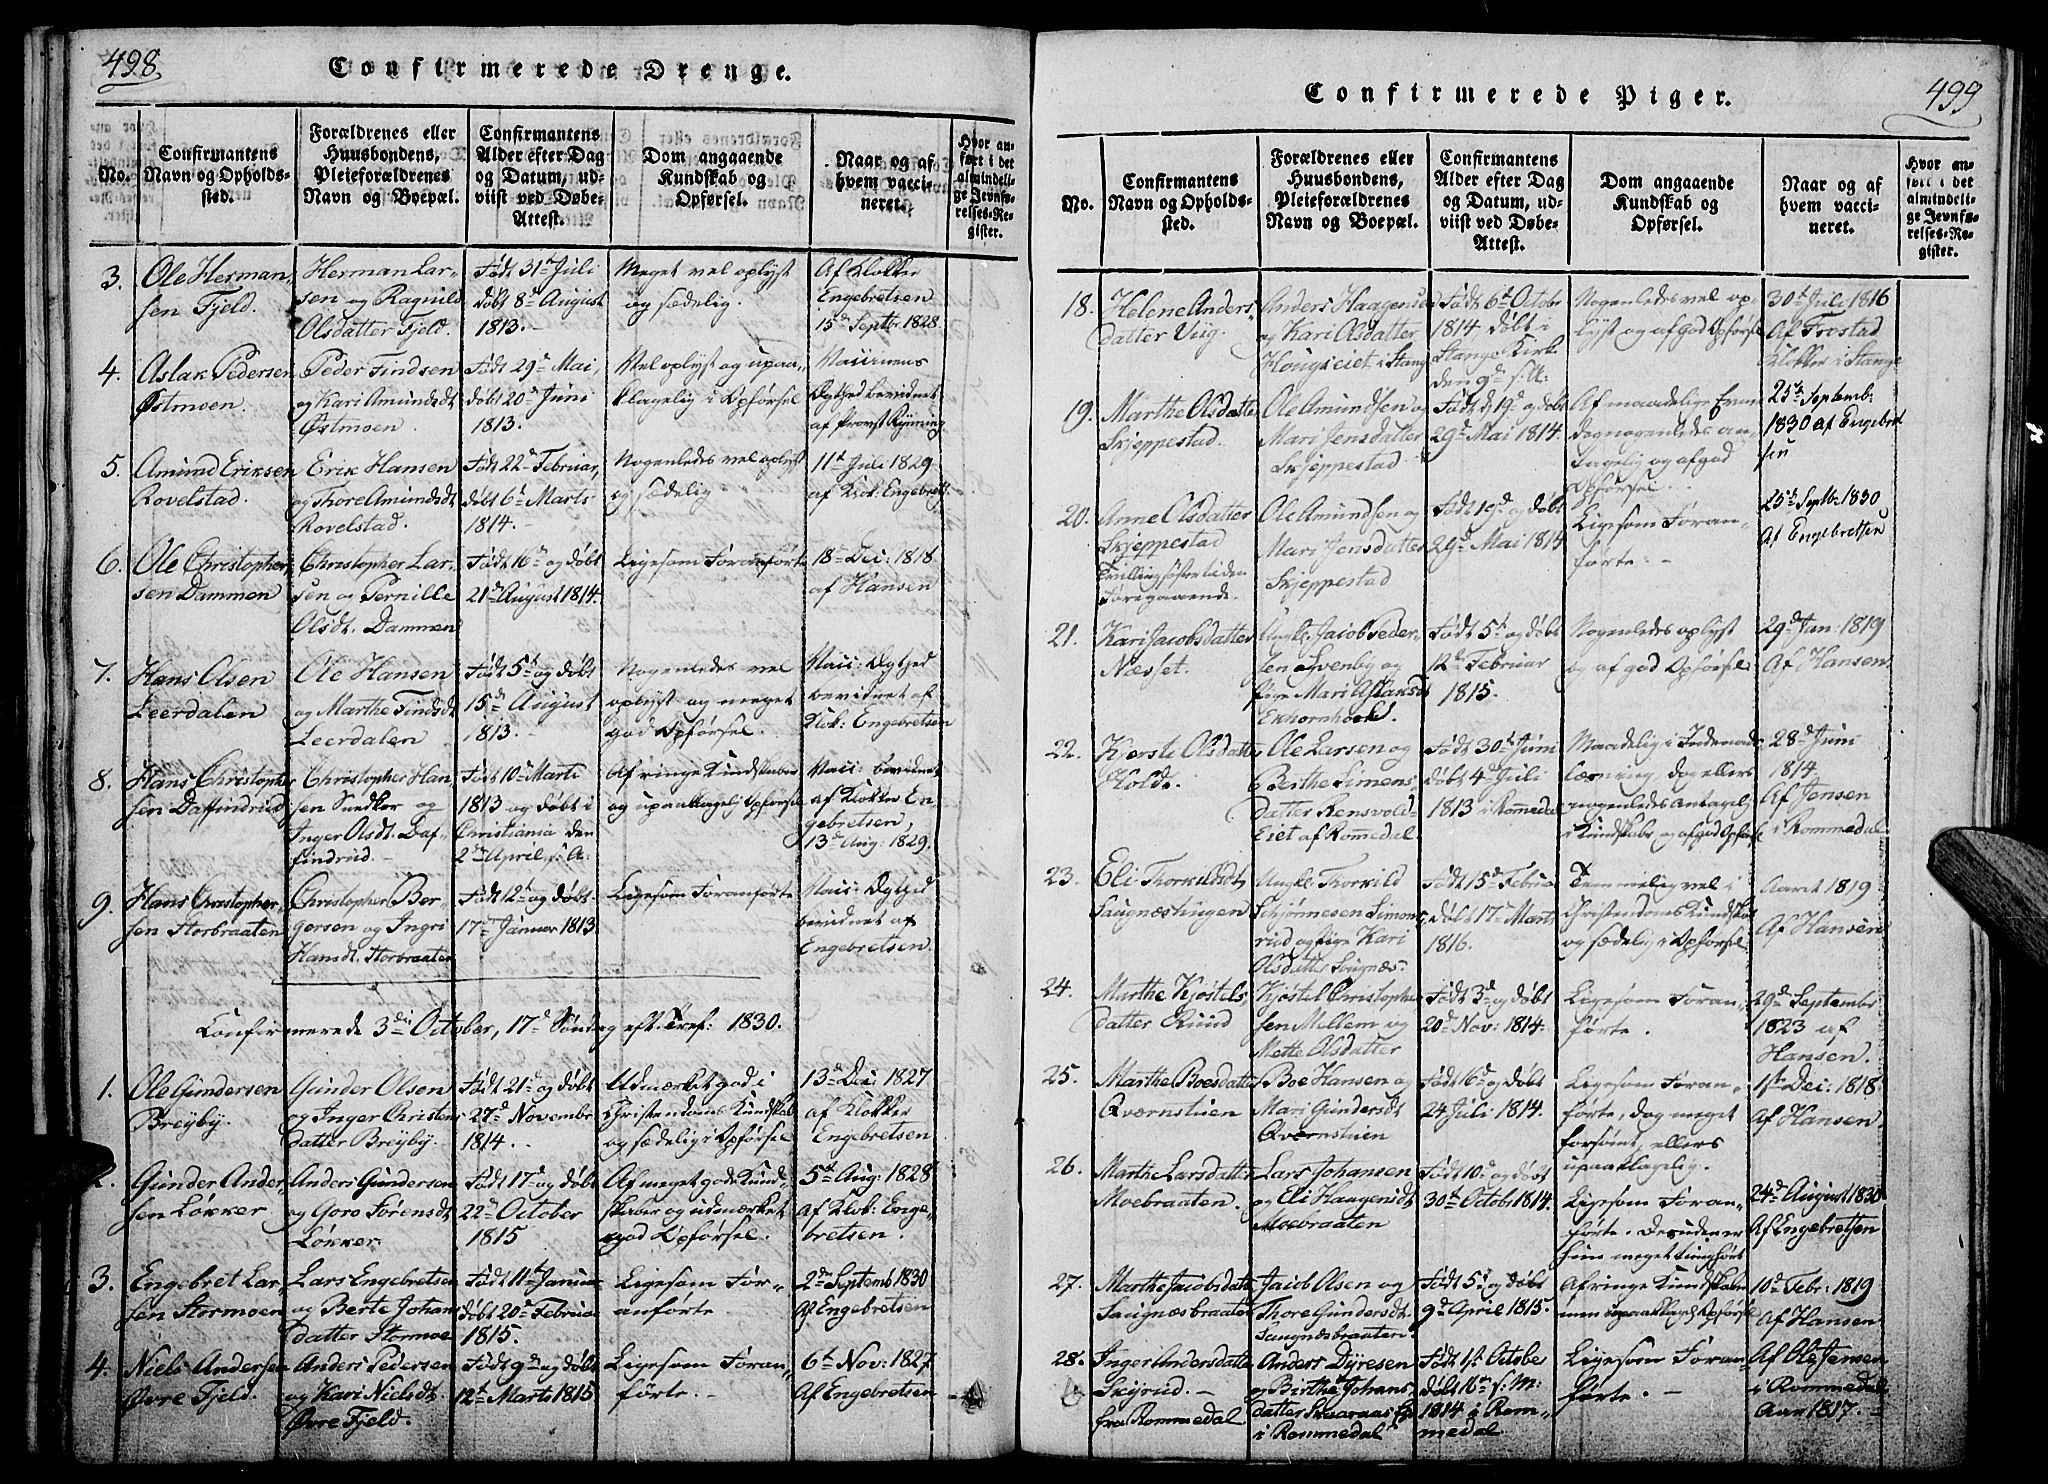 498.
Confirmerede Drenge.
No.
Confirmantens
Navn og Opholds-
sted.
Forældrenes eller
Huusbondens,
Pleieforældrenes
Navn og Boepæl.
Confirmantens
Alder efter Dag
og Datum, ud-
viist ved Døbe-
Attest.
Dom angaaende
Kundskab og
Opførsel.
Naar og af
hvem vacci-
neret.
Hvor an-
ført i det
almindeli-
ge Jevnfø-
relses-Re-
gister.
3.
Ole Herman-
sen Fjeld.
Herman Lar-
sen og Ragnild
Olsdatter Fjeld.
Født 31te Juli
døbt 8de August
1813.
Meget vel oplyst
og sædelig.
Af Klokker
Engebretsen
15de Septbr 1828.
4.
Aslak Pedersen
Østmoen.
Peder Findsen
og Kari Amundsdt
Østmoen.
Født 29de Mai,
døbt 20de Juni
1813.
Vel oplyst og upaa-
klagelig i Opførsel
Vaccinens
Ægthed bevidnet
af Provst Rynning
5.
Amund Eriksen
Rovelstad.
Erik Hansen
og Thore Amundsdt
Rovelstad.
Født 22de Februar,
døbt 6te Marts
1814.
Nogenledes vel oplyst
og sædelig
11te Juli 1829
af Klok: Engebrets.
6.
Ole Christopher-
sen Dammen
Christopher Lar-
sen og Pernille
Olsdt. Dammen
Født 16de og døbt
21de August 1814.
Ligesom Foranførte
18de Dec: 1818
af Hansen
7.
Hans Olsen
Leerdalen
Ole Hansen
og Marthe Findsdt
Leerdalen
Født 5te og døbt
15de August
1813.
Nogenledes vel
oplyst og meget
god Opførsel.
Vacc: Ægthed
bevidnet af
Klok: Engebretsen
8.
Hans Christopher-
sen Daffindrud
Christopher Han-
sen Snedker og
Inger Olsdt. Daf-
findrud.
Født 10de Marts
1813 og døbt i
Christiania den
2den April s: A:
Af ringe Kundskaber
og upaaklagelig Opførsel
Vacc: bevidnet
af Klokker En-
gebretsen,
13de Aug: 1829.
9.
Hans Christopher-
sen Storbraaten
Christopher Bor-
gersen og Ingri
Hansdt. Storbraaten
Født 12te og døbt
17de Januar 1813
Ligesom Foranførte
Vacc: Ægthed
bevidnet af
Engebretsen.
Confirmerede 3die October, 17de Søndag eft: Tref: 1830.
1.
Ole Gundersen
Breÿby.
Gunder Olsen
og Inger Christens
datter Breÿby.
Født 21de og døbt
27de Novembr
1814.
Udmærket god i
Christendoms Kundskab
og sædelig i Opførsel
13de Dec: 1827
af Klokker
Engebretsen
2.
Gunder Ander-
sen Løkker
Anders Gundersen
og Goro Sørensdt
Løkker
Født 17de og døbt
22de October
1815
Af meget gode Kund-
skaber og udmærket
god Opførsel.
5te Aug: 1828
af Klok: Enge-
bretsen.
3.
Engebret Lar-
sen Stormoen
Lars Engebretsen
og Berte Johans
datter Stormoe
Født 11te Januar
døbt 20de Februar
1815.
Ligesom For-
anførte
2den Septemb 1830
Af Engebretsen
4.
Niels Andersen
Øvre Fjeld.
Anders Pedersen
og Kari Nielsdt
Øvre Fjeld.
Født 9de og døbt
12te Marts 1815
Ligesom Foran-
førte.
6te Nov: 1827
Af Engebretsen
499
Confirmerede Piger.
No.
Confirmantens
Navn og Opholds-
sted.
Forældrenes eller
Huusbondens,
Pleieforældrenes
Navn og Boepæl.
Confirmantens
Alder efter Dag
og Datum, ud-
viist ved Døbe-
Attest.
Dom angaaende
Kundskab og
Opførsel.
Naar og af
hvem vacci-
neret.
Hvor an-
ført i det
almindeli-
ge Jevnfø-
relses-Re-
gister.
18.
Helene Anders-
datter Viig.
Anders Haagense
og Kari Olsdatter
Hougseiet i Stange
Født 6te Octobr
1814 døbt i
Stange Kirke
den 9de s: A:
Nogenledes vel op-
lyst og af god Opførsel
30te Juli 1816
Af Frostad
Klokker i Stange
19.
Marthe Olsdatter
Skjeppestad.
Ole Amundsen og
Mari Jensdatter
Skjeppestad
Født 19de og døbt
29de Mai 1814.
Af maadelige Evner
dog nogenledes an-
tagelig og af god
Opførsel.
25de Septemb:
1830 af Engebret
sen
20.
Anne Olsdatter
Skjeppestad
Tvillingsøster til den
Foregaaende.
Ole Amundsen og
Mari Jensdatter
Skjeppestad
Født 19de og døbt
29de Mai 1814
Ligesom Foran-
førte.
25de Septb: 1830
Af Engebretsen
21.
Kari Jacobsdatter
Næsset.
Ungk. Jacob Peder-
sen Svenby og
Pige Mari Aslaksdt
Ekhornhoel.
Født 5te og døbt
12te Februar
1815.
Nogenledes oplyst
og af god Opførsel
29de Jan: 1819
Af Hansen.
22.
Kjerste Olsdatter
Hold.
Ole Larsen og
Berthe Simens-
datter Rensvold-
Eiet af Romedal.
Født 30te Juni
døbt 4de Juli
1813 i Romedal
Maadelig i Indenads
læsning, dog ellers
nogenledes Antagelig
i Kundskab og af god Opførsel
28de Juni
1814
Af Jensen
i Rommedal
23.
Eli Thorkildsdt.
Saugnæstuen
Ungk. Thorkild
Schjønnesen Simens
riud og Pige Kari
Olsdatter Saugnæs.
Født 15de Februar
døbt 17de Marts
1816.
Temmelig vel i
Christendoms Kundskab
og sædelig i Opførsel
Aaret 1819
Af Hansen
24.
Marthe Kjøstels-
datter Ruud
Kjøstel Christopher
sen Mellem og
Mette Olsdatter
Født 3de og døbt
20de Nov: 1814.
Ligesom Foran-
førte.
29de September
1823 af
Hansen.
25.
Marthe Boesdatter
Qværnstuen
Boe Hansen og
Mari Gundersdt
Qværnstuen
Født 16de og døbt
24 Juli 1814.
Ligesom Foran-
førte, dog meget
forsømt, ellers
upaaklagelig.
1ste Dec: 1818
Af Hansen.
26.
Marthe Larsdatter
Moebraaten.
Lars Johansen
og Eli Haagensdt
Moebraaten
Født 10de og døbt
30te Octobr 1814.
Ligesom Foran-
førte. Desuden er
hun meget tunghørt
24de August 1830
Af Engebretsen
27.
Marthe Jacobsdatter
Saugnæsbraaten
Jacob Olsen og
Thore Gundersdt.
Saugnæsbraaten
Født 5te og døbt
9de April 1815.
Af ringe Kundskaber
men upaaklagelig Opførsel
10de Febr: 1819
Af Hansen
28.
Inger Andersdatter
Skyrud.
fra Rommedal
Anders Dyresen
og Birthe Johans-
datter
i Rommedal
Født 1ste October
døbt 16de s: M:
1814 i Rom-
medal.
Ligesom Foran-
førte.
Af Ole Jensen
i Rommedal
Aar 1817.